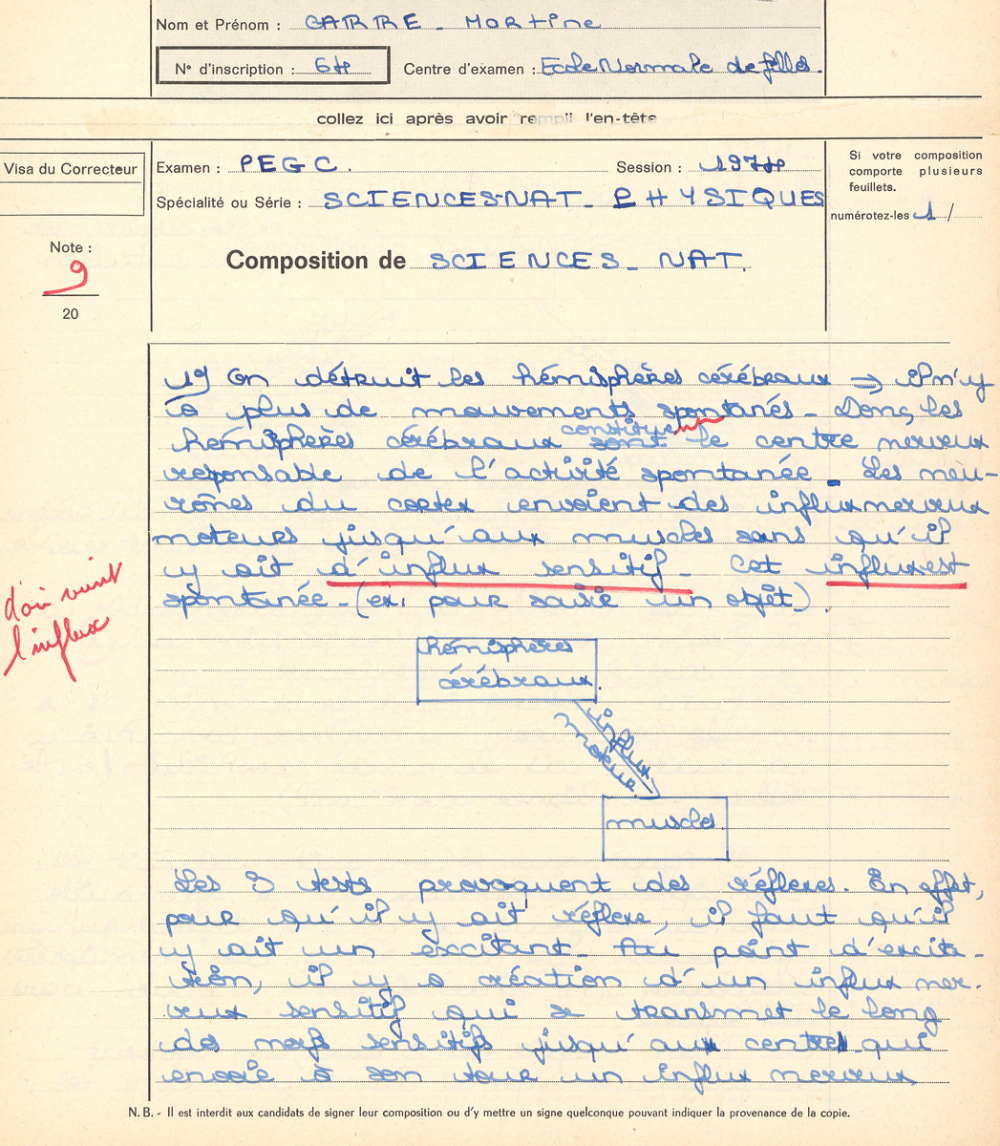 Nom et Prénom : CARRE - Martine
N° d'inscription : 64
Centre d'examen : Ecole Normale de filles.
collez ici après avoir rempli l'en-tête
Visa du Correcteur
Examen : PEGC.
Session : 1974
Si votre composition comporte plusieurs feuillets.
numérotez-les 1 /
Spécialité ou Série : SCIENCES-NAT - PHYSIQUES
Note :
9
20
Composition de SCIENCES - NAT.
1°) On détruit les hémisphères cérébraux => il n'y
a plus de mouvements spontanés - Donc, les
hémisphères cérébraux constituent le centre nerveux
responsable de l'activité spontanée. Les neu-
rônes du cortex envoient des influx nerveux
moteurs jusqu'aux muscles sans qu'il
y ait d'influx sensitif - Cet influx est
spontanée - (ex. pour saisir un objet).
d'où vient
l'influx
hémisphères
cérébraux.
influx
moteur
muscles.
Les 3 tests provoquent des réflexes. En effet,
pour qu'il y ait réflexe, il faut qu'il
y ait un excitant. Au point d'excita-
tion, il y a création d'un influx ner-
veux sensitif qui se transmet le long
des nerfs sensitifs jusqu'aux centres qui
envoie à son tour un influx nerveux
N. B. - Il est interdit aux candidats de signer leur composition ou d'y mettre un signe quelconque pouvant indiquer la provenance de la copie.